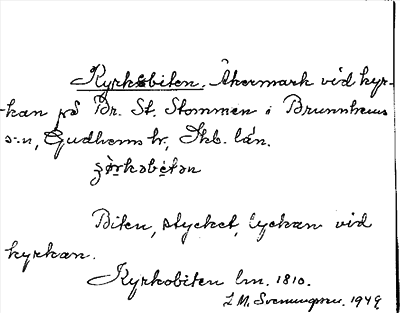 Kyrkobiten. Åkermark vid kyr-
kan på Br. St. Stommen i Brunnhems
s:n, Gudhems hr, Skb. län.
Biten, stycket, lyckan vid
kyrkan.
Kyrkobiten lm. 1810.
L M. Svenungsson. 1949